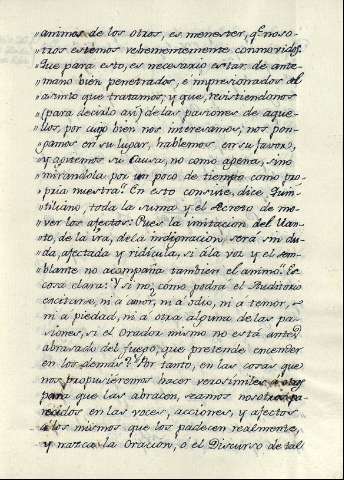 "animos de los otros, es menester, q.e noso-
"tros estemos vehementemente conmovidos.
"Que para esto, es necesario estar de ante-
"mano bien penetrados, é impresionados del
"asunto que tratamos; y que, revistiendonos
"(para decirlo asi) de las pasiones de aque-
"llos, por cuyo bien nos interesamos, nos pon-
"gamos en su lugar, hablemos en su favor,
"y agitemos su Causa, no como agena, sino
"mirandola por un poco de tiempo como pro-
"pria nuestra". En esto consiste, dice Quin-
tiliano, toda la suma y el secreto de mo-
ver los afectos: Pues la imitacion del llan-
to, de la ira, de la indignacion, será sin du-
da, afectada y ridicula, si á la voz y el sem-
blante no acompaña tambien el animo. Es
cosa clara: Y si no, como podrá el Auditorio
excitarse, ni á amor, ni á odio, ni á temor,
ni á piedad, ni á otra alguna de las pa-
siones, si el Orador mismo no está antes
abrasado del fuego, que pretende encender
en los demás? Por tanto, en las cosas que
nos propusieremos hacer verosimiles á otros
para que las abracen, seamos nosotros pa-
recidos en las voces, acciones, y afectos
á los mismos que los padecen realmente,
y nazca la Oracion, ó el Discurso de tal